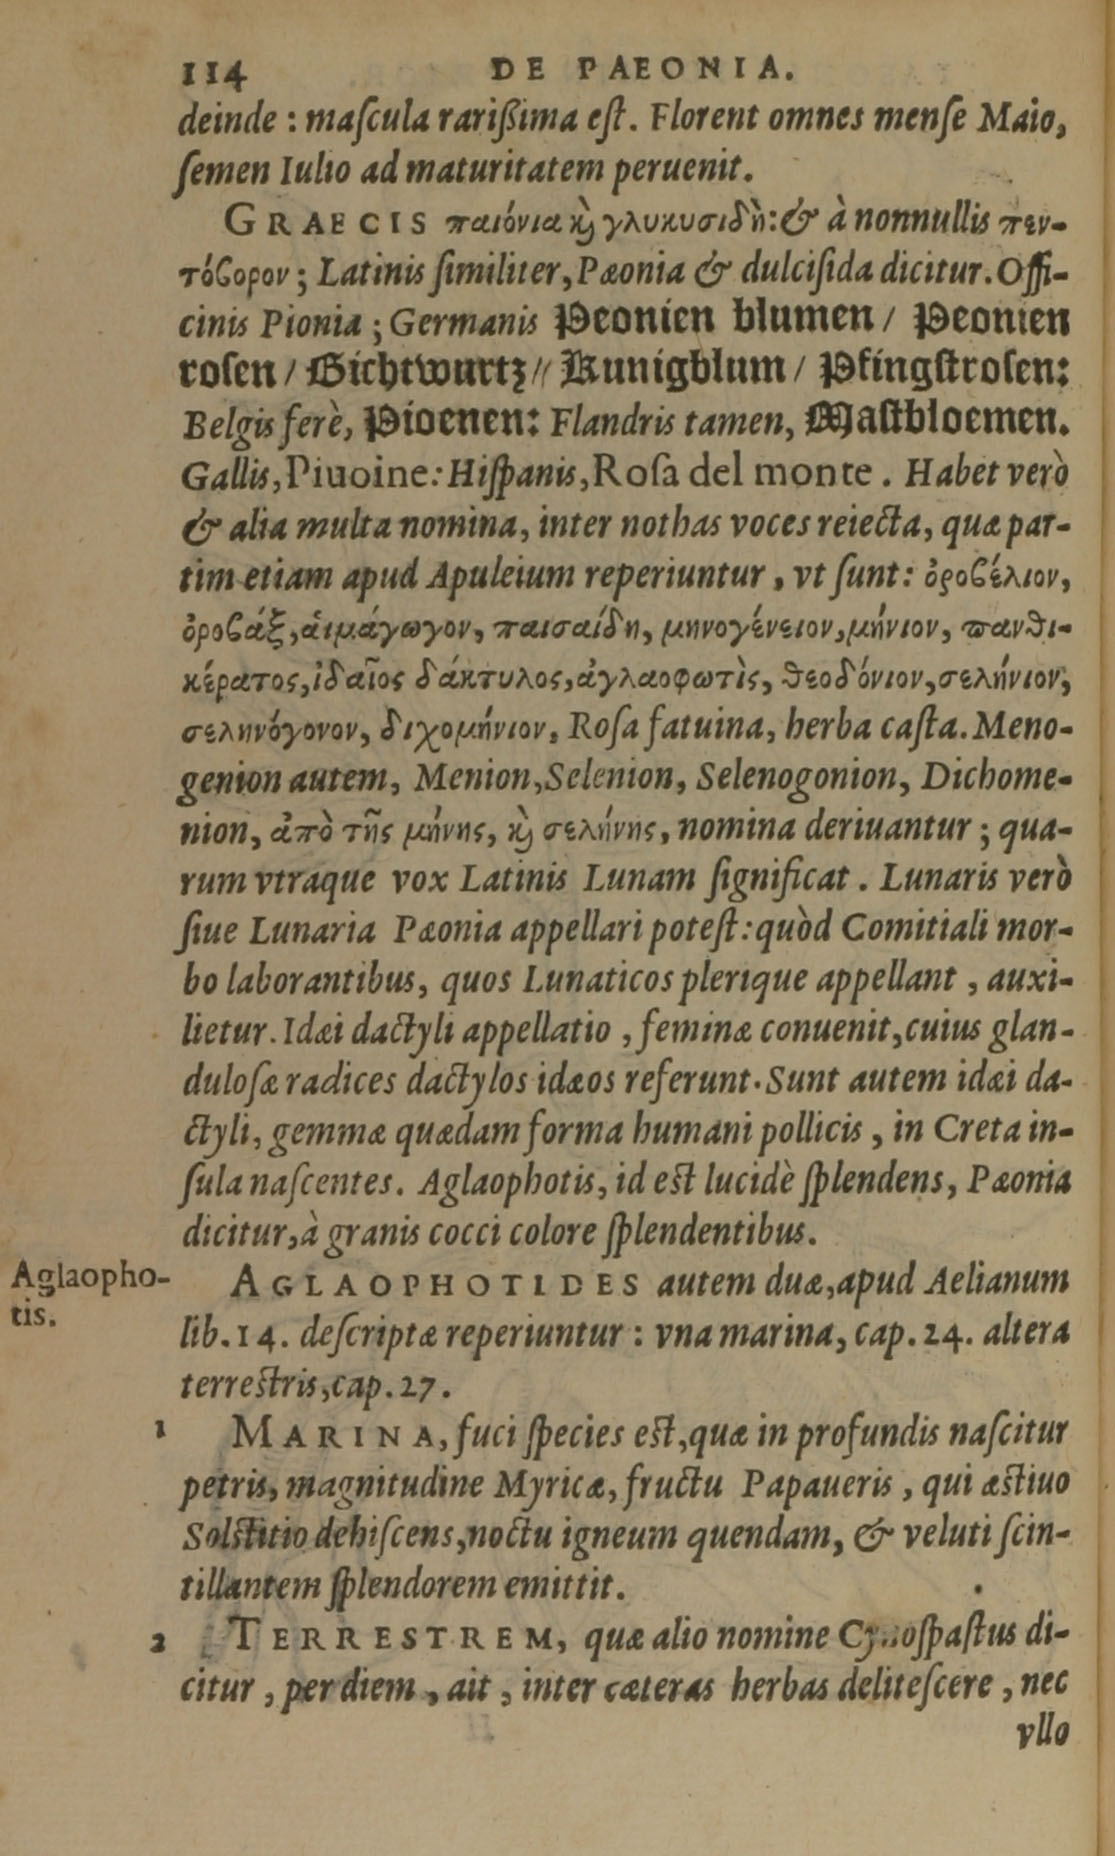 114 DE PAEONIA.
deinde : maſcula rarißima eſt. Florent omnes menſe Maio,
ſemen Iulio ad maturitatem peruenit.
GRAECIS παιόνια ϗ̀ γλυκυσιδὴ: & à nonnullis πεν-
τόϐορον ; Latinis ſimiliter, Pæonia & dulciſida dicitur. Offi-
cinis Pionia ; Germanis Peonien blumen / Peonien
roſen / Gichtwurtz // Kunigblum / Pfingſtroſen:
Belgis ferè, Pioenen: Flandris tamen, Maſtbloemen.
Gallis, Piuoine: Hiſpanis, Roſa del monte . Habet verò
& alia multa nomina, inter nothas voces reiecta, quæ par-
tim etiam apud Apuleium reperiuntur , vt ſunt: ὀροϐέλιον,
ὀροϐάξ, ἁιμάγωγον, παισαίδη, μηνογένειον, μήνιον, ϖανθι-
κέρατος, ἰδαῖος δάκτυλος, ἀγλαοφωτὶς, θεοδόνιον, σελήνιον,
σεληνόγονον, διχομήνιον, Roſa fatuina, herba caſta. Meno-
genion autem, Menion, Selenion, Selenogonion, Dichome-
nion, ἀπὸ τῆς μήνης, ϗ̀ σελήνης, nomina deriuantur ; qua-
rum vtraque vox Latinis Lunam ſignificat . Lunaris verò
ſiue Lunaria Pæonia appellari poteſt: quòd Comitiali mor-
bo laborantibus, quos Lunaticos plerique appellant , auxi-
lietur. Idæi dactyli appellatio , feminæ conuenit, cuius glan-
duloſæ radices dactylos idæos referunt. Sunt autem idæi da-
ctyli, gemmæ quædam forma humani pollicis , in Creta in-
ſula naſcentes. Aglaophotis, id eſt lucidè ſplendens, Pæonia
dicitur, à granis cocci colore ſplendentibus.
Aglaopho-
tis.
AGLAOPHOTIDES autem duæ, apud Aelianum
lib. 14. deſcriptæ reperiuntur : vna marina, cap. 24. altera
terreſtris, cap. 27.
1 MARINA, fuci ſpecies eſt, quæ in profundis naſcitur
petris, magnitudine Myricæ, fructu Papaueris , qui æſtiuo
Solſtitio dehiſcens, noctu igneum quendam, & veluti ſcin-
tillantem ſplendorem emittit.
2 TERRESTREM, quæ alio nomine Cynoſpaſtus di-
citur , per diem , ait , inter cæteras herbas deliteſcere , nec
vllo